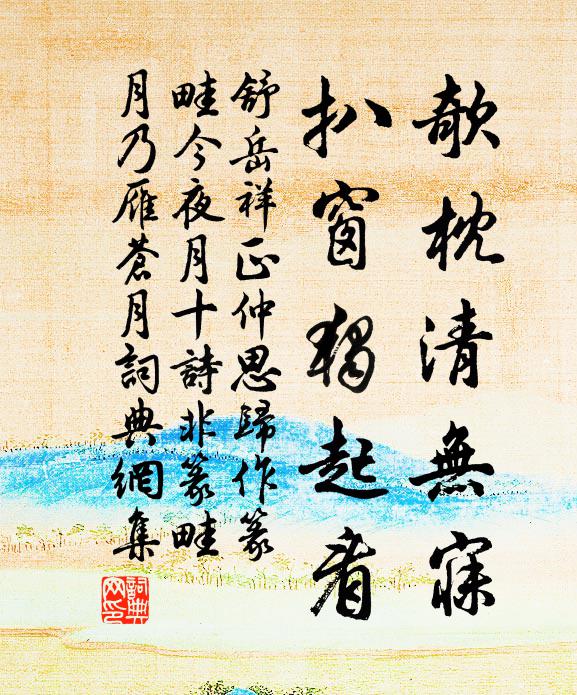 欹枕清無寐
扒窗獨起看
舒岳祥正仲思歸作篆
畦今夜月十詩非篆畦
月乃雁蒼月詞典網集
詞典網印